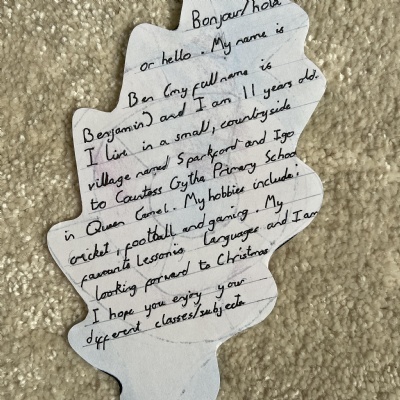 Bonjour/hola
or hello. My name is
Ben (my full name is
Benjamin) and I am 11 years old.
I live in a small, countryside
village named Sparkford and I go
to Countess Gytha Primary School
in Queen Camel. My hobbies include:
cricket, football and gaming. My
favourite lesson is languages and I am
looking forward to Christmas
I hope you enjoy your
different classes/subjects